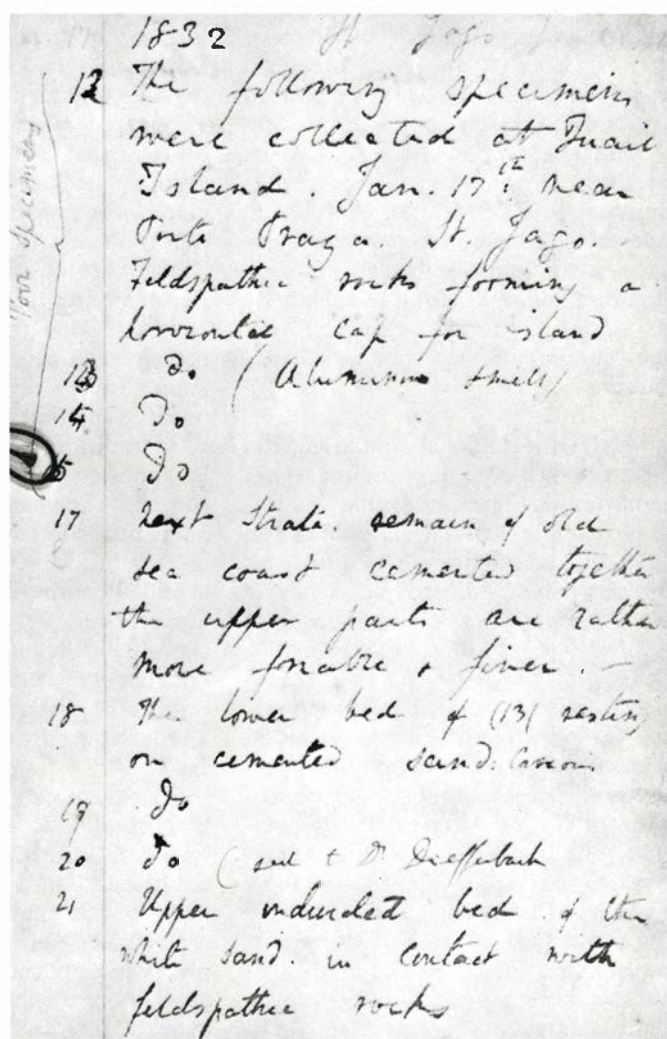 1832 St Jago
12 The following specimens
were collected at Quail
Island. Jan. 17th. near
Porto Praya St. Jago.
Feldspathic rocks forming a
horizontal cap for island
13 Do (Aluminous smell)
14 Do
15 Do
specimens
17 Next Strata. remain of old
sea coast cemented together
the upper parts are rather
more friable & finer. —
18 The lower bed of (13) resting
on cemented sand.
19 Do
20 Do ( sent to Dr Dieffenbach
21 Upper indurated bed of the
white sand. in contact with
feldspathic rocks